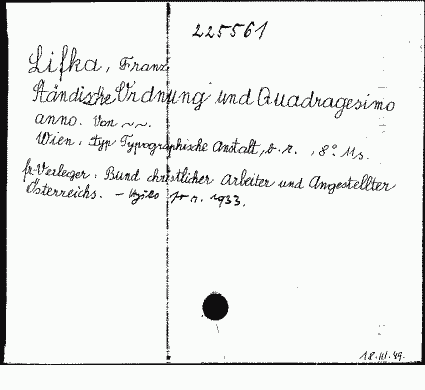 225561
Lifka, Franz
Ständische Ordnung und Quadragesimo
anno. Von ~~.
Wien: Typographische Anstalt, o. J. , 8° 11 s.
fr. Verleger: Bund christlicher Arbeiter und Angestellter
Österreichs. – 1933.
18.III.49.